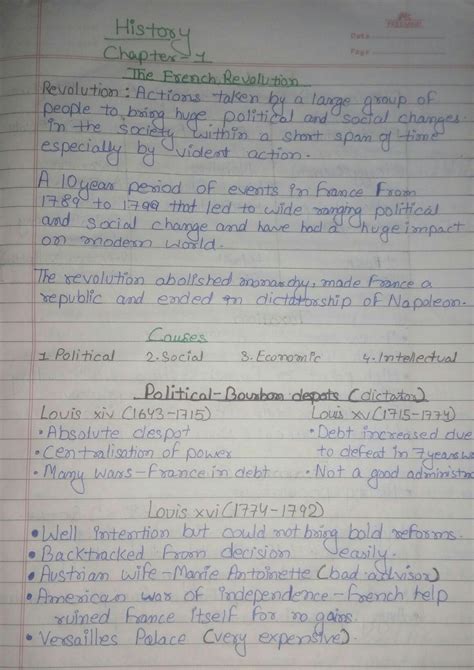 History
Date
Page
Chapter-1
The French Revolution
Revolution: Actions taken by a large group of
people to bring huge political and social changes
in the society within a short span of time
especially by violent action.
A 10 year period of events in France from
1789 to 1799 that led to wide ranging political
and social change and have had a huge impact
on modern world.
The revolution abolished monarchy, made France a
republic and ended in dictatorship of Napoleon.
Causes
1. Political 2. Social 3. Economic 4. Intellectual
Political-Bourbon despots (dictator)
Louis xiv (1643-1715) Louis xv (1715-1774)
• Absolute despot • Debt increased due
• Centralisation of power to defeat in 7 years w
• Many wars-France in debt • Not a good administra
Louis xvi (1774-1792)
• Well intention but could not bring bold reforms.
• Backtracked from decision easily.
• Austrian wife-Marie Antoinette (bad advisor)
• American war of independence-French help
ruined France itself for no gains.
• Versailles Palace (very expensive).